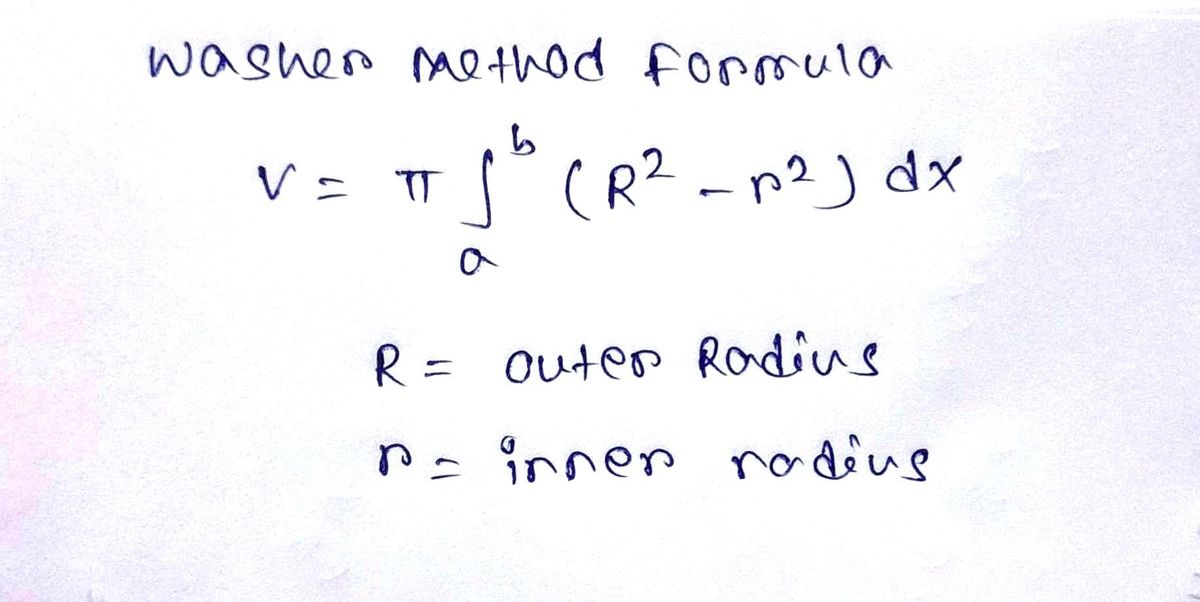 Washer Method formula
V = π ∫ₐᵇ (R² - r²) dx
R = outer Radius
r = inner radius